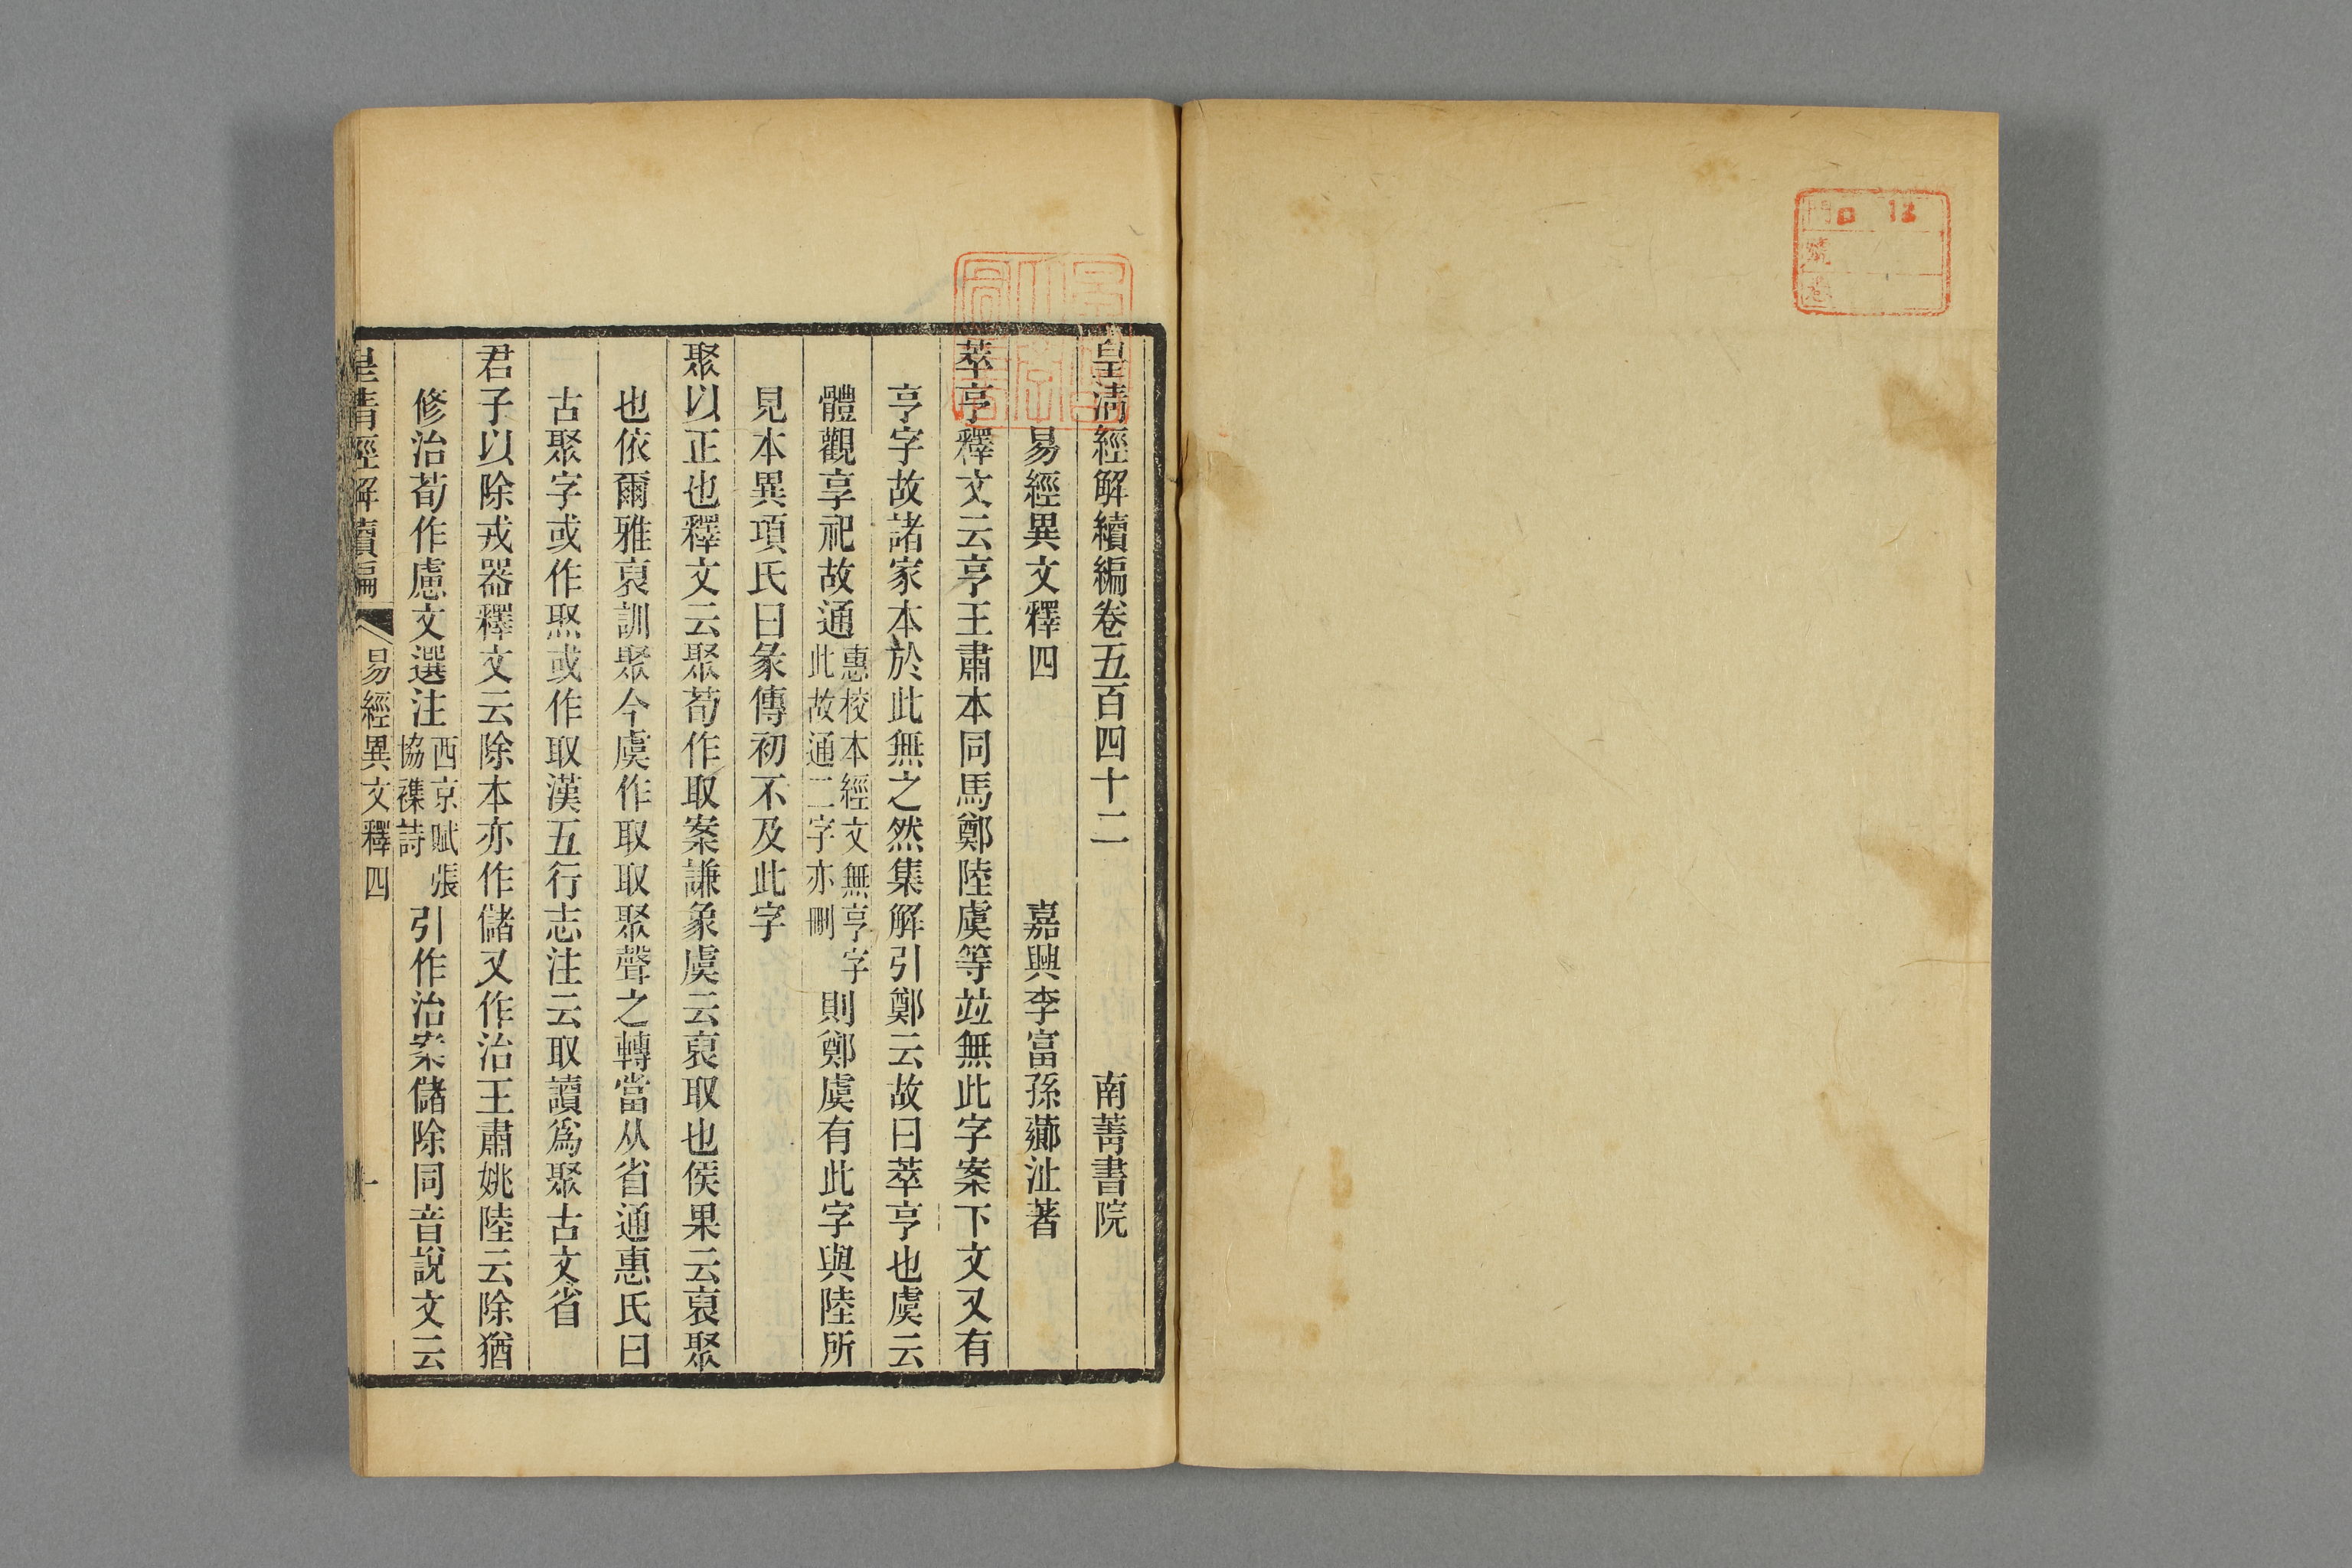 皇淸經解續編卷五百四十二　南菁書院
易經異文釋四　嘉興李富孫薌沚著
萃亨釋文云亨王肅本同馬鄭陸虞等竝無此字案下文又有
亨字故諸家本於此無之然集解引鄭云故曰萃亨也虞云
體觀享祀故通惠校本經文無亨字此故通二字亦刪則鄭虞有此字與陸所
見本異項氏曰彖傳初不及此字
聚以正也釋文云聚荀作取案謙象虞云裒取也侯果云裒聚
也依爾雅裒訓聚今虞作取取聚聲之轉當从省通惠氏曰
古聚字或作焣或作取漢五行志注云取讀爲聚古文省
君子以除戎器釋文云除本亦作儲又作治王肅姚陸云除猶
修治荀作慮文選注西京賦張協襍詩引作治案儲除同音說文云
皇清經解續編　易經異文釋四　一
門 口 13
號